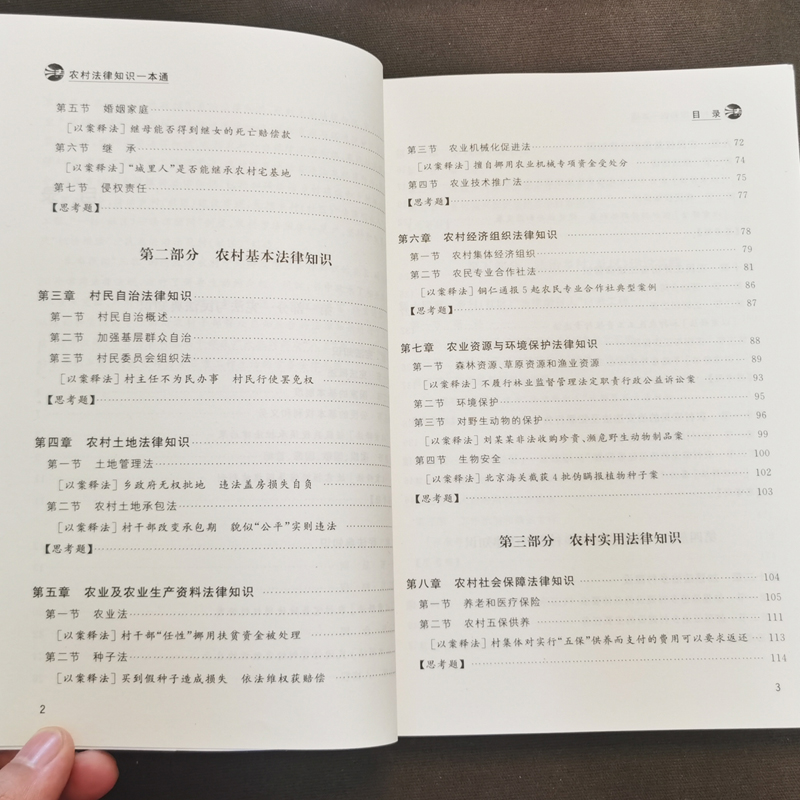 农村法律知识一本通
第五节 婚姻家庭
［以案释法］继母能否得到继女的死亡赔偿款
第六节 继 承
［以案释法］“城里人”是否能继承农村宅基地
第七节 侵权责任
【思考题】
第二部分 农村基本法律知识
第三章 村民自治法律知识
第一节 村民自治概述
第二节 加强基层群众自治
第三节 村民委员会组织法
［以案释法］村主任不为民办事 村民行使罢免权
【思考题】
第四章 农村土地法律知识
第一节 土地管理法
［以案释法］乡政府无权批地 违法盖房损失自负
第二节 农村土地承包法
［以案释法］村干部改变承包期 貌似“公平”实则违法
【思考题】
第五章 农业及农业生产资料法律知识
第一节 农业法
［以案释法］村干部“任性”挪用扶贫资金被处理
第二节 种子法
［以案释法］买到假种子造成损失 依法维权获赔偿
2
目 录
第三节 农业机械化促进法 72
［以案释法］擅自挪用农业机械专项资金受处分 74
第四节 农业技术推广法 75
【思考题】 77
第六章 农村经济组织法律知识 78
第一节 农村集体经济组织 79
第二节 农民专业合作社法 81
［以案释法］铜仁通报5起农民专业合作社典型案例 86
【思考题】 87
第七章 农业资源与环境保护法律知识 88
第一节 森林资源、草原资源和渔业资源 89
［以案释法］不履行林业监督管理法定职责行政公益诉讼案 93
第二节 环境保护 95
第三节 对野生动物的保护 96
［以案释法］刘某某非法收购珍贵、濒危野生动物制品案 99
第四节 生物安全 100
［以案释法］北京海关截获4批伪瞒报植物种子案 102
【思考题】 103
第三部分 农村实用法律知识
第八章 农村社会保障法律知识 104
第一节 养老和医疗保险 105
第二节 农村五保供养 111
［以案释法］村集体对实行“五保”供养而支付的费用可以要求返还 113
【思考题】 114
3